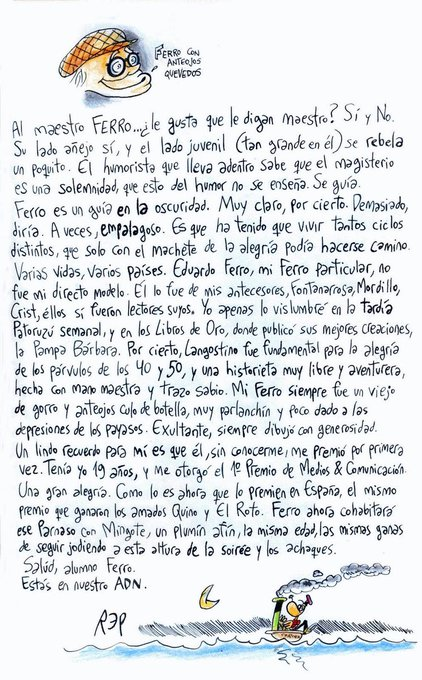 FERRO CON
ANTEOJOS
QUEVEDOS
Al maestro FERRO...¿le gusta que le digan maestro? Sí y No.
Su lado añejo sí, y el lado juvenil (tan grande en él) se rebela
un poquito. El humorista que lleva adentro sabe que el magisterio
es una solemnidad, que esto del humor no se enseña. Se guía.
Ferro es un guía en la oscuridad. Muy claro, por cierto. Demasiado,
diría. A veces, empalagoso. Es que ha tenido que vivir tantos ciclos
distintos, que solo con el machete de la alegría podía hacerse camino.
Varias vidas, varios países. Eduardo Ferro, mi Ferro particular, no
fue mi directo modelo. Él lo fue de mis antecesores, Fontanarrosa, Mordillo,
Crist, éllos sí fueron lectores suyos. Yo apenas lo vislumbré en la tardía
Patoruzú semanal, y en los Libros de Oro, donde publicó sus mejores creaciones,
la Pampa Bárbara. Por cierto, Langostino fue fundamental para la alegría
de los párvulos de los 40 y 50, y una historieta muy libre y aventurera,
hecha con mano maestra y trazo sabio. Mi Ferro siempre fue un viejo
de gorro y anteojos culo de botella, muy parlanchín y poco dado a las
depresiones de los payasos. Exultante, siempre dibujó con generosidad.
Un lindo recuerdo para mí es que él, sin conocerme, me premió por primera
vez. Tenía yo 19 años, y me otorgó el 1º Premio de Medios & Comunicación.
Una gran alegría. Como lo es ahora que lo premien en España, el mismo
premio que ganaron los amados Quino y El Roto. Ferro ahora cohabitará
ese Parnaso con Mingote, un plumín afín, la misma edad, las mismas ganas
de seguir jodiendo a esta altura de la soirée y los achaques.
Salúd, alumno Ferro.
Estás en nuestro ADN.
REP